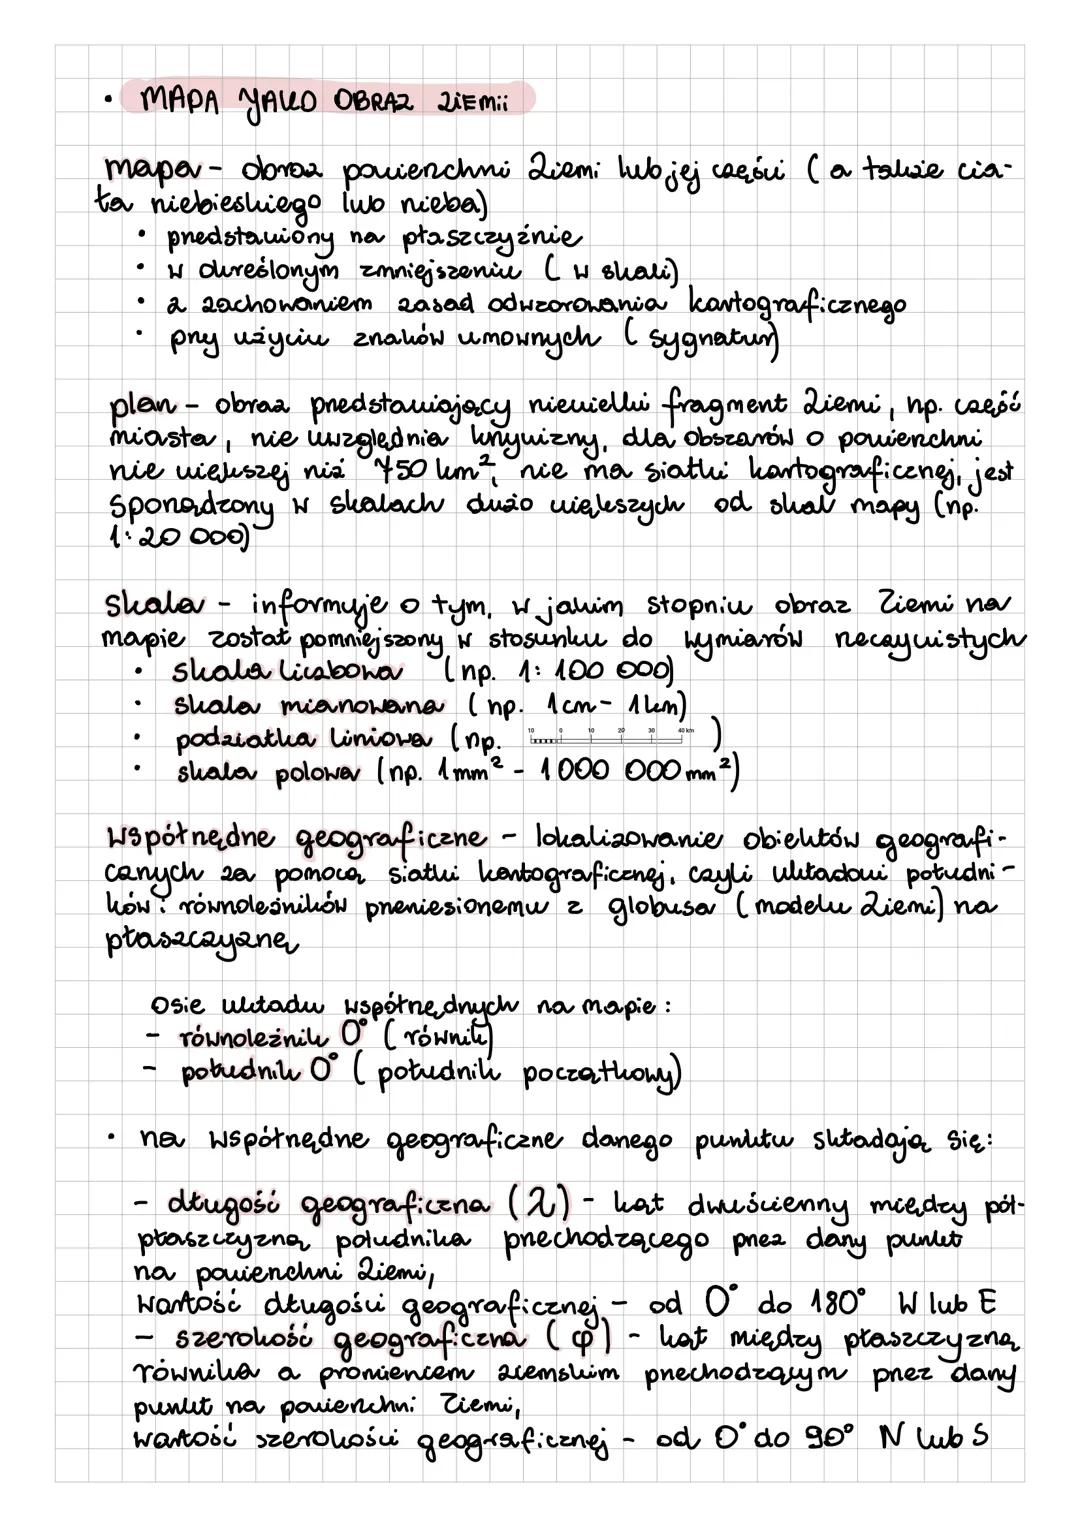 • MAPA JAKO OBRAZ ZIEMII
mapa - obraz powierzchni Ziemi lub jej części (a także cia-
ła niebieskiego lub nieba)
• przedstawiony na płaszczyźnie
• w określonym zmniejszeniu (w skali)
• z zachowaniem zasad odwzorowania kartograficznego
• przy użyciu znaków umownych (sygnatur)
plan - obraz przedstawiający niewielki fragment Ziemi, np. część
miasta, nie uwzględnia krzywizny, dla obszarów o powierzchni
nie większej niż 750 km², nie ma siatki kartograficznej, jest
sporządzony w skalach dużo większych od skal mapy (np.
1:20 000)
Skala - informuje o tym, w jakim stopniu obraz Ziemi na
mapie został pomniejszony w stosunku do wymiarów rzeczywistych
• skala liczbowa (np. 1: 100 000)
• skala mianowana (np. 1cm - 1km)
• podziałka liniowa (np. 10 0 10 20 30 40 km )
• skala polowa (np. 1mm² - 1000 000 mm²)
Współrzędne geograficzne - lokalizowanie obiektów geografi-
cznych za pomocą siatki kartograficznej, czyli układowi południ-
ków i równoleżników przeniesionemu z globusa (modelu Ziemi) na
płaszczyznę
Osie układu współrzędnych na mapie:
- równoleżnik 0° (równik)
- południk 0° (południk początkowy)
• na współrzędne geograficzne danego punktu składają się:
- długość geograficzna (λ) - kąt dwuścienny między pół-
płaszczyzną południka przechodzącego przez dany punkt
na powierzchni Ziemi,
wartość długości geograficznej - od 0° do 180° W lub E
- szerokość geograficzna (φ) - kąt między płaszczyzną
równika a promieniem ziemskim przechodzącym przez dany
punkt na powierzchni Ziemi,
wartość szerokości geograficznej - od 0° do 90° N lub S